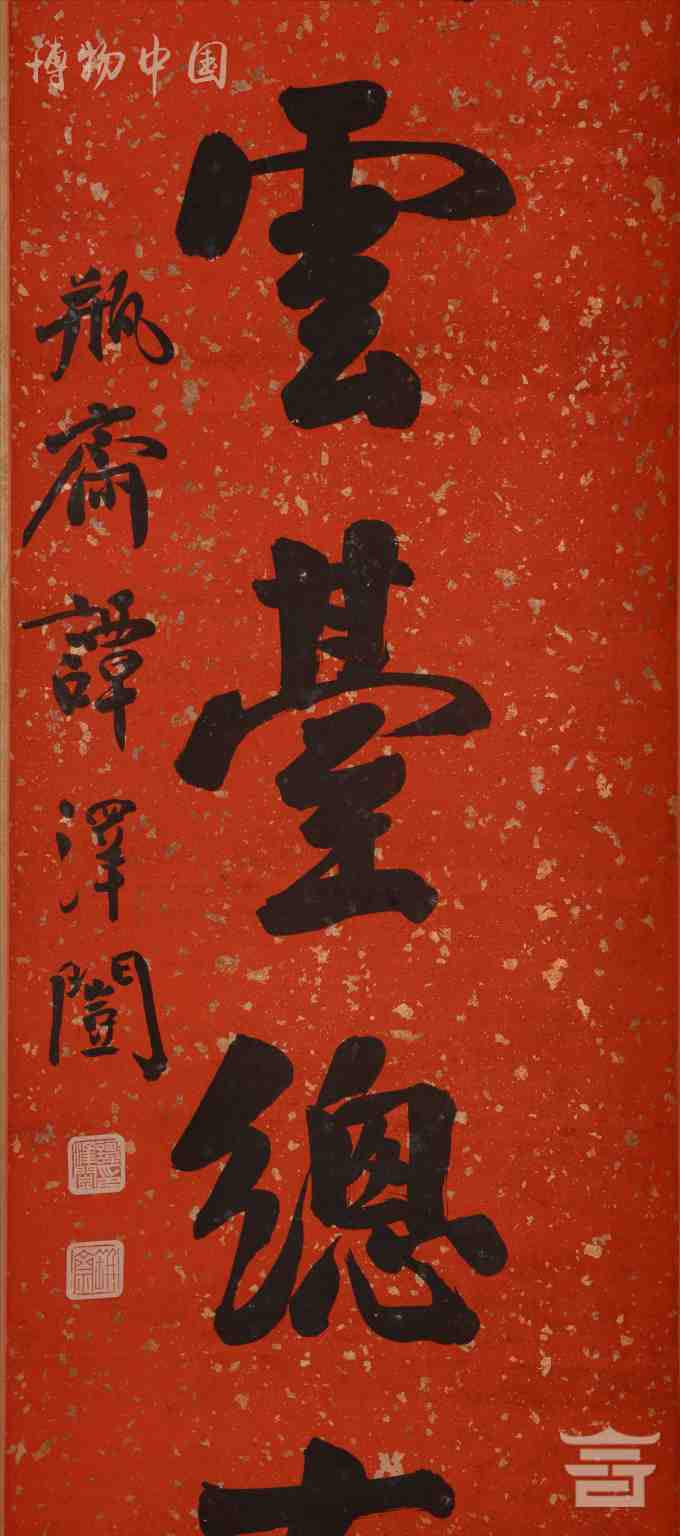 博物中国
雲臺總
瓶齋譚澤闓